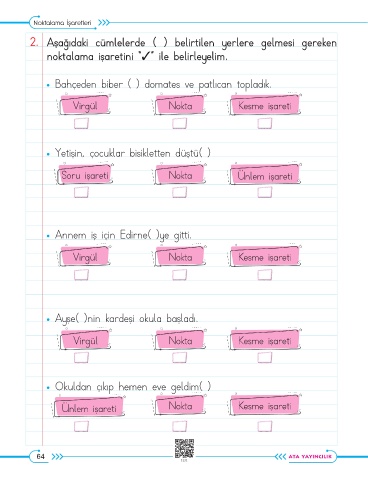 Noktalama İşaretleri
2. Aşağıdaki cümlelerde ( ) belirtilen yerlere gelmesi gereken
noktalama işaretini "✓" ile belirleyelim.
• Bahçeden biber ( ) domates ve patlıcan topladık.
Virgül Nokta Kesme işareti
• Yetişin, çocuklar bisikletten düştü( )
Soru işareti Nokta Ünlem işareti
• Annem iş için Edirne( )ye gitti.
Virgül Nokta Kesme işareti
• Ayşe( )nin kardeşi okula başladı.
Virgül Nokta Kesme işareti
• Okuldan çıkıp hemen eve geldim( )
Ünlem işareti Nokta Kesme işareti
64
ATA YAYINCILIK